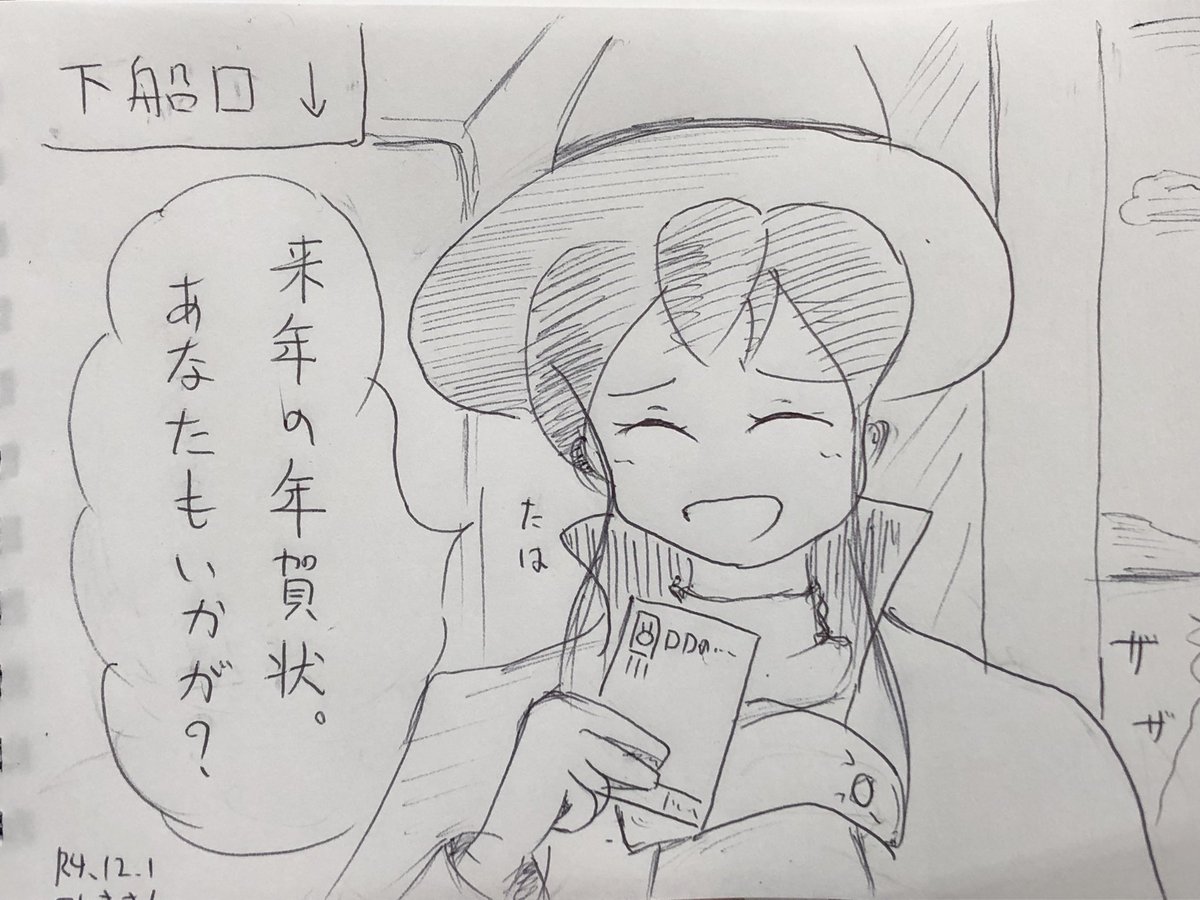 下船口 ↓
来年の年賀状。
あなたもいかが?
たは
DDの…
ザ
ザ
R4.12.1